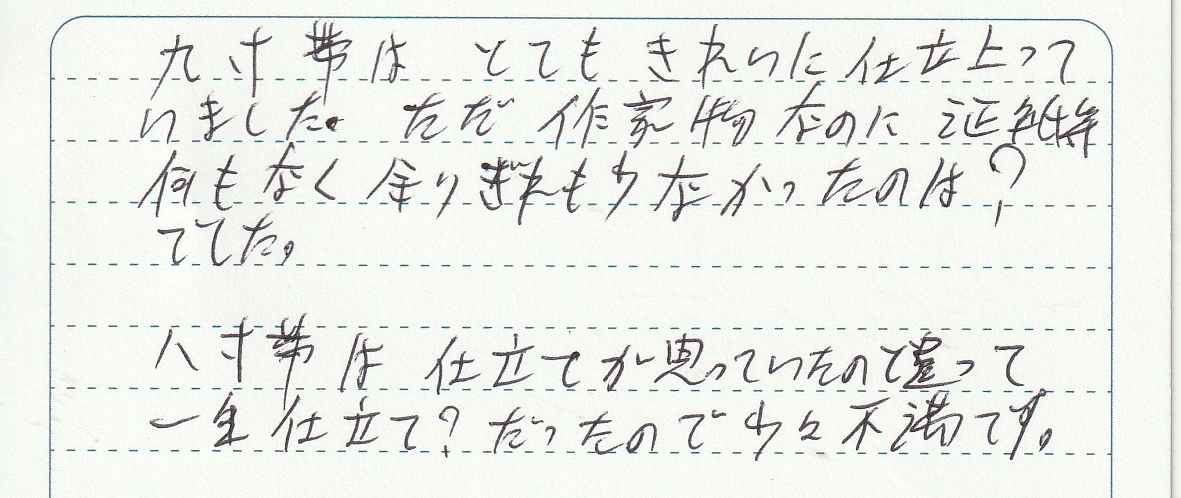 九寸帯は とても きれいに 仕立上って
いました。ただ 作家物なのに 証紙等
何もなく 余りぎれも少なかったのは?
ででした。
八寸帯は 仕立てが思っていたので違って
一重仕立て?だったので少々不満です。